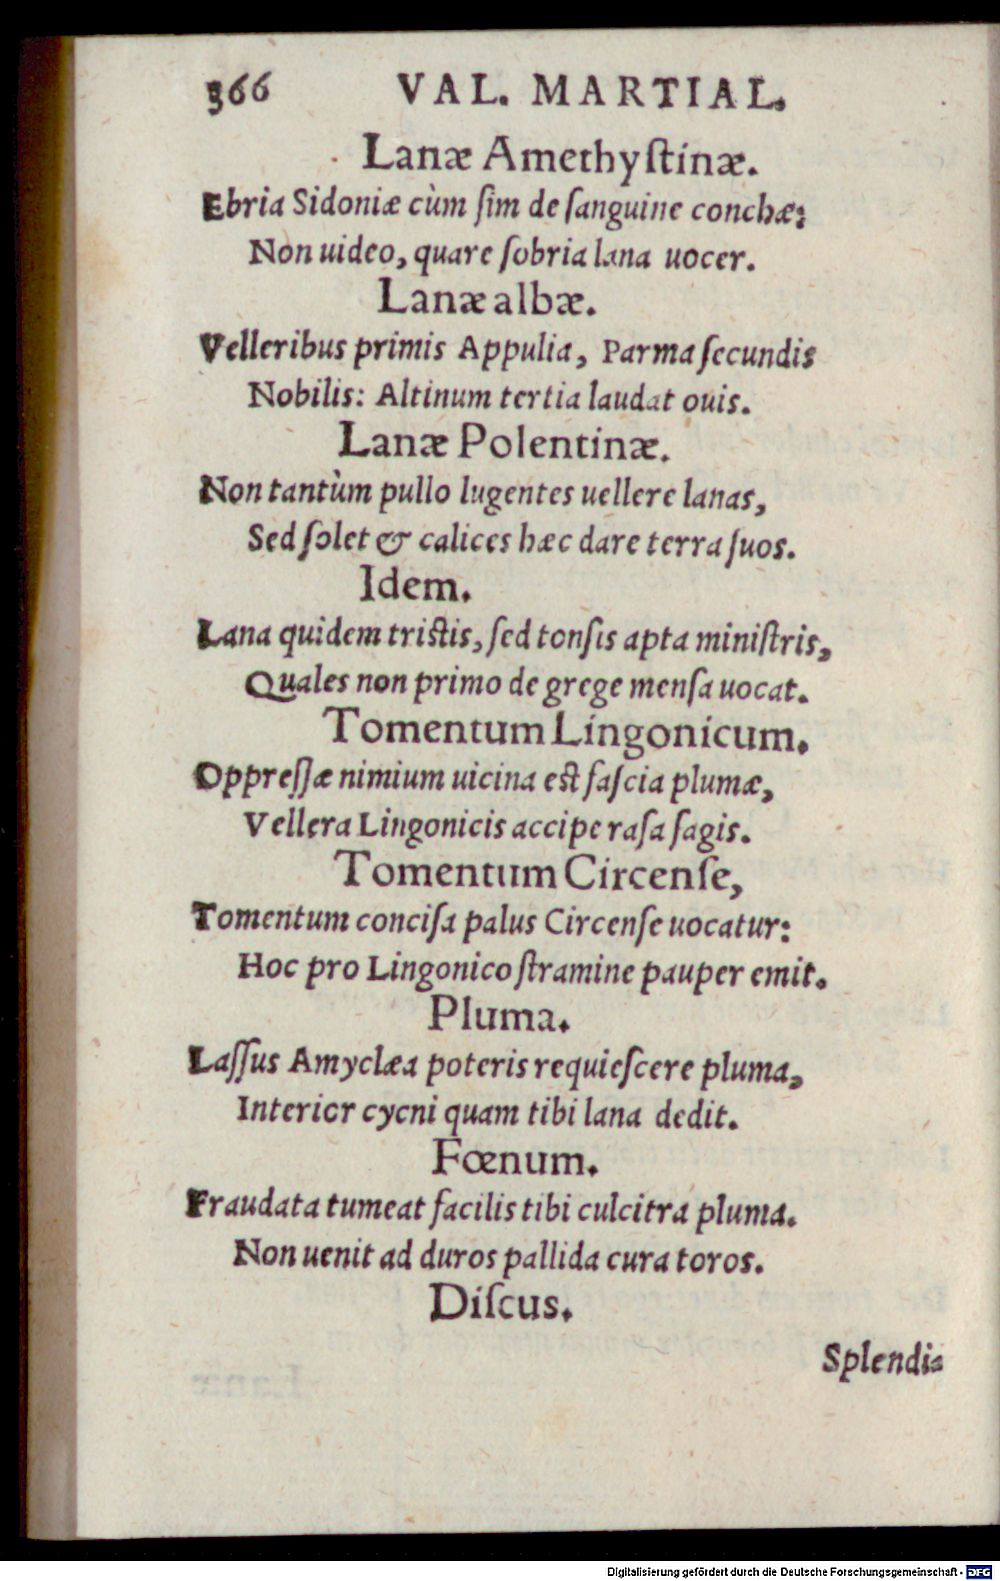 366 VAL. MARTIAL.
Lanæ Amethyſtinæ.
Ebria Sidoniæ cùm ſim de ſanguine conchæ:
Non uideo, quare ſobria lana uocer.
Lanæ albæ.
Velleribus primis Appulia, Parma ſecundis
Nobilis: Altinum tertia laudat ouis.
Lanæ Polentinæ.
Non tantùm pullo lugentes uellere lanas,
Sed ſolet & calices hæc dare terra ſuos.
Idem.
Lana quidem triſtis, ſed tonſis apta miniſtris,
Quales non primo de grege menſa uocat.
Tomentum Lingonicum.
Oppreſſæ nimium uicina eſt faſcia plumæ,
Vellera Lingonicis accipe raſa ſagis.
Tomentum Circenſe,
Tomentum conciſa palus Circenſe uocatur:
Hoc pro Lingonico ſtramine pauper emit.
Pluma.
Laſſus Amyclæa poteris requieſcere pluma,
Interior cycni quam tibi lana dedit.
Fœnum.
Fraudata tumeat facilis tibi culcitra pluma.
Non uenit ad duros pallida cura toros.
Diſcus.
Splendi-
Digitalisierung gefördert durch die Deutsche Forschungsgemeinschaft - DFG